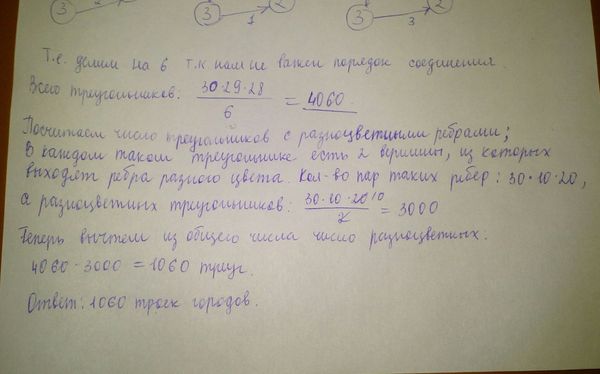 3 2 3 2
1 3
Т.е. делим на 6 т.к нам не важен порядок соединения.
Всего треугольников: 30·29·28 / 6 = 4060.
Посчитаем число треугольников с разноцветными ребрами;
В каждом таком треугольнике есть 2 вершины, из которых
выходят ребра разного цвета. Кол-во пар таких ребер: 30·10·20,
а разноцветных треугольников: 30·10·20 10 / 2 = 3000
Теперь вычтем из общего числа число разноцветных.
4060-3000=1060 треуг.
Ответ: 1060 троек городов.